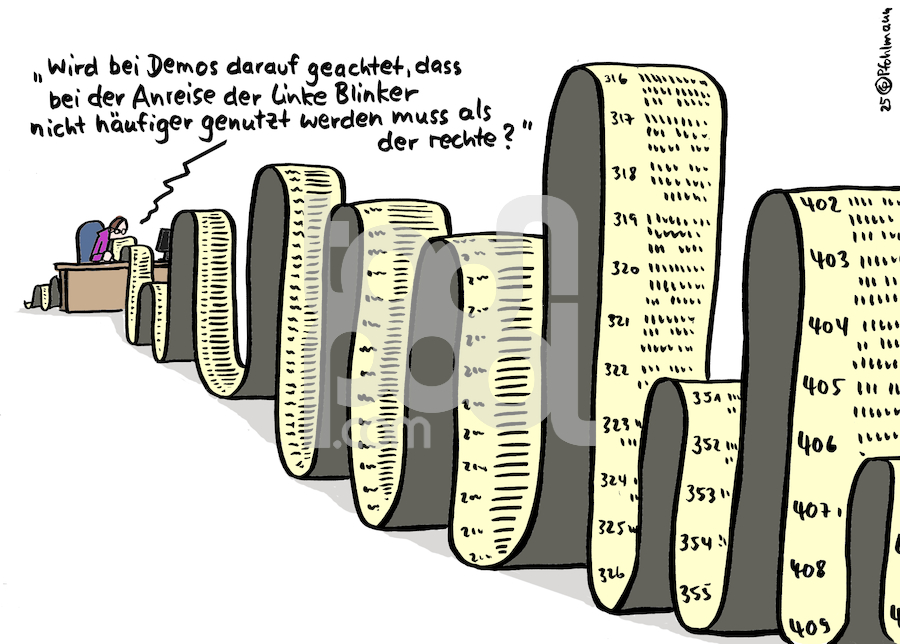 „Wird bei Demos darauf geachtet, dass
bei der Anreise der linke Blinker
nicht häufiger genutzt werden muss als
der rechte?"
25 © Pfohlmann
316
317
318
319
320
321
322
323
324
325
326
351
352
353
354
355
402
403
404
405
406
407
408
409
.com